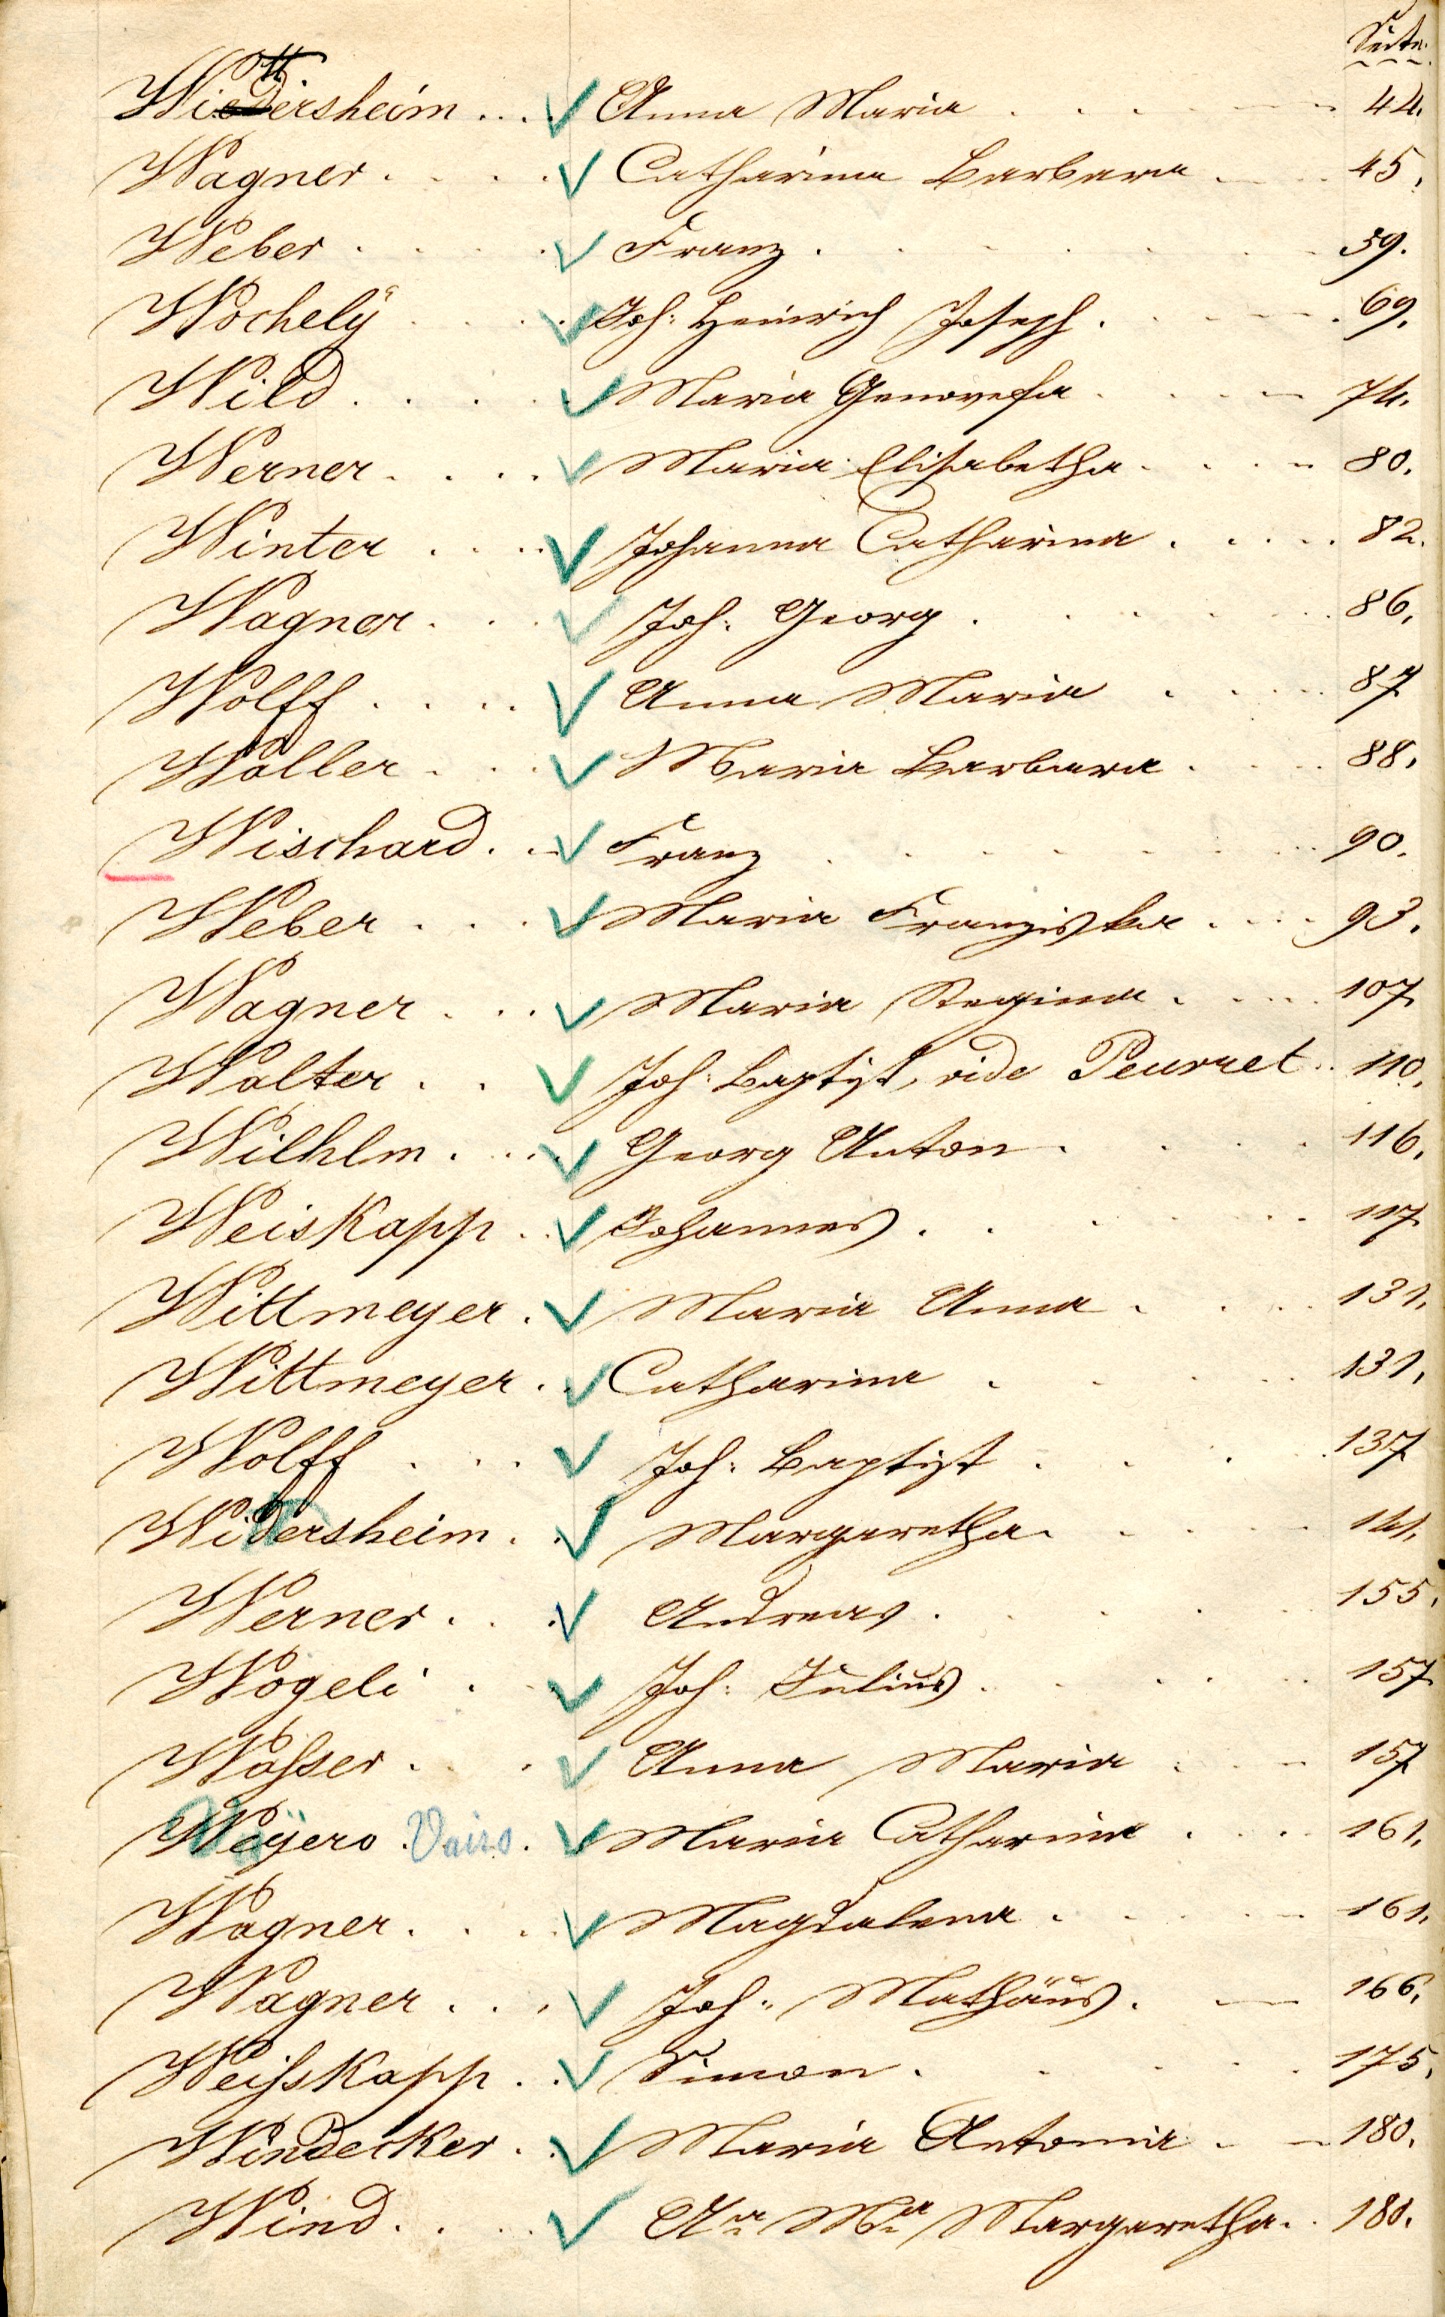 Seite.
Wittersheim ... Anna Maria . . . 44.
Wagner . . . . Catharina Barbara . . . 45.
Weber . . . . Franz . . . . 59.
Wochelÿ . . . . Joh: Heinrich Joseph . . . . 69.
Wild . . . . Maria Genovefa . . . . 74.
Werner . . . . Maria Elisabetha . . . . 80.
Winter . . . . Johanna Catharina . . . . 82.
Wagner . . . Joh: Georg . . . . 86.
Wolff . . . . Anna Maria . . . . 87
Waller . . . Maria Barbara . . . . 88.
Wischard . . . Franz . . . . 90.
Weber . . . . Maria Franziska . . . . 93.
Wagner . . . Maria Regina . . . . 107
Walter . . . Joh: Baptist, vide Peurret . . 110.
Wilhlm . . . Georg Anton . . . . 116.
Weiskapp . . Johannes . . . . 117
Wittmeyer . Maria Anna . . . . 131.
Wittmeyer . . Catharina . . . . 131.
Wolff . . . . Joh: Baptist . . . . 137
Widersheim . . Margaretha . . . . 141.
Werner . . . Andreas . . . . 155.
Wogeli . . . Joh: Julius . . . . 157
Wasser . . . Anna Maria . . . 157
Weÿero . Vairo . Maria Catharina . . . . 161.
Wagner . . . . Magdalena . . . . 161.
Wagner . . . Joh: Mathäus . . . 166.
Weisskapp . . Simon . . . . 175.
Windecker . . Maria Antonia . . . 180.
Wind . . . . Aa Ma Margaretha . . 180.